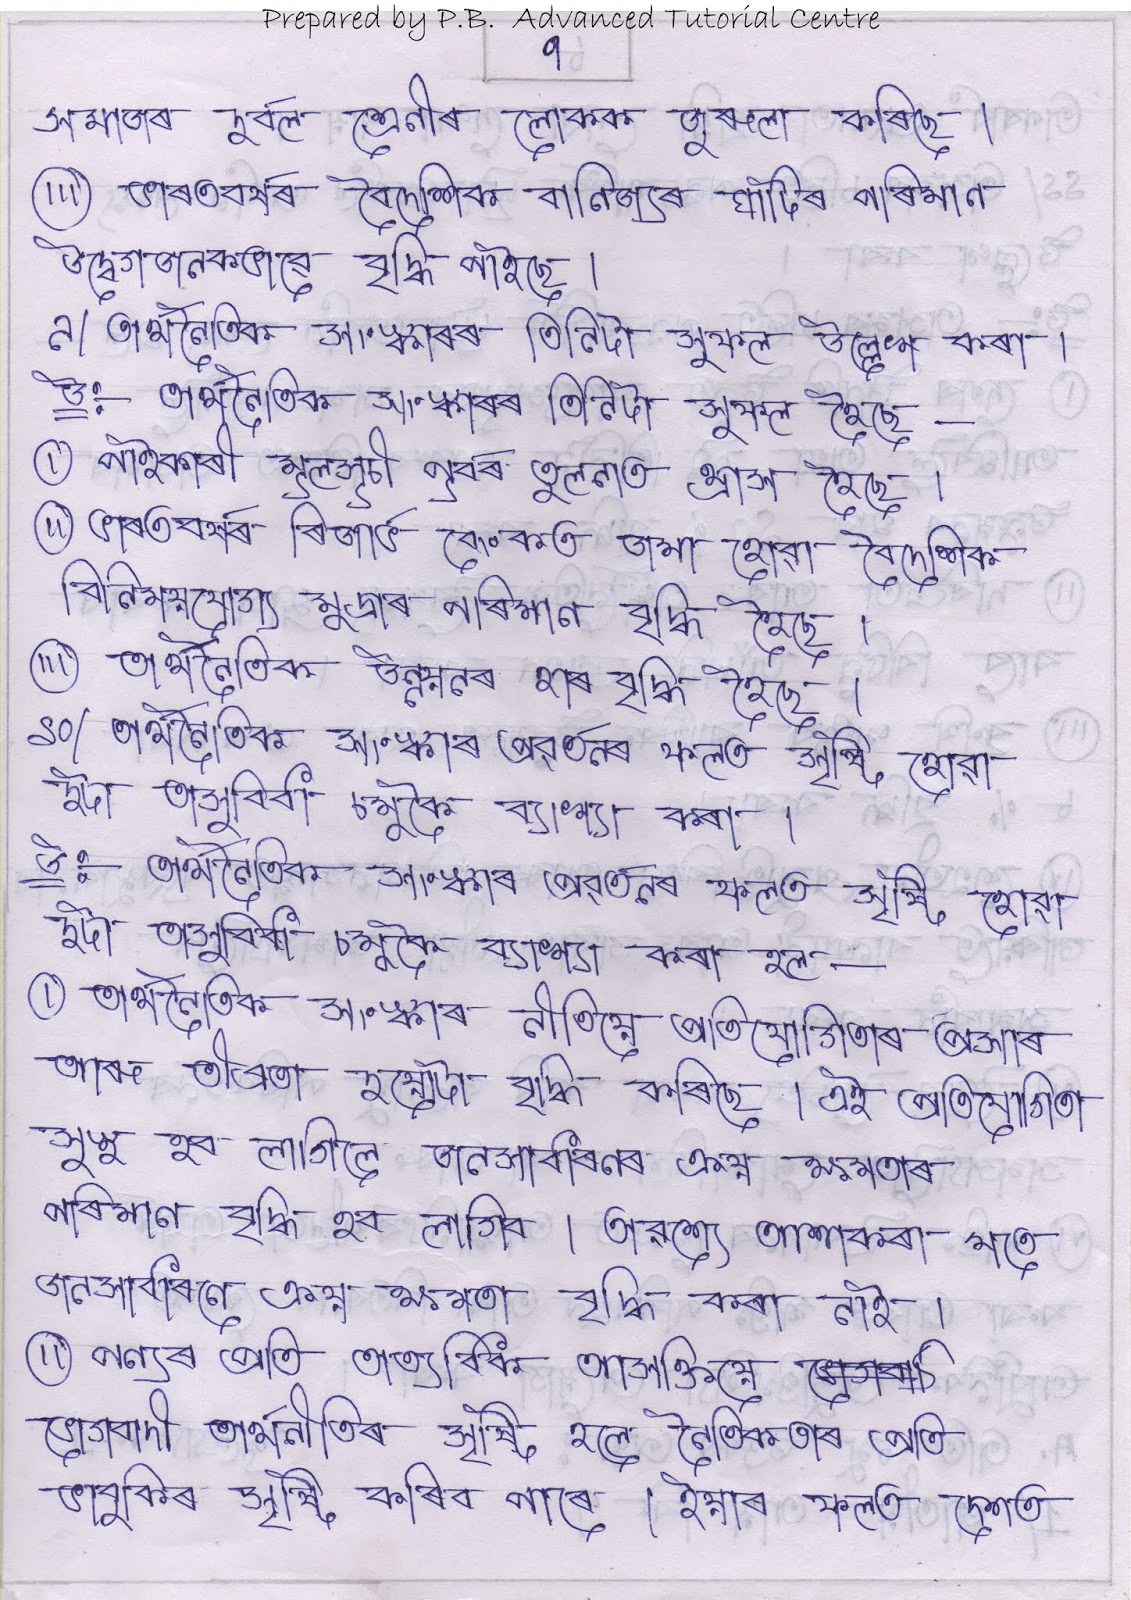 Prepared by P.B. Advanced Tutorial Centre
৭
সমাজৰ দুৰ্বল শ্ৰেনীৰ লোকক জুৰুলা কৰিছে ।
(iii) ভাৰতবৰ্ষৰ বৈদেশিক বানিজ্যৰ ঘাটিৰ পৰিমান
উদ্বেগজনকভাৱে বৃদ্ধি পাইছে ।
৯/ অৰ্থনৈতিক সংস্কাৰৰ তিনিটা সুফল উল্লেখ কৰা ।
উঃ- অৰ্থনৈতিক সংস্কাৰৰ তিনিটা সুফল হৈছে —
(i) পাইকাৰী মূলসূচী পূৰ্বৰ তুলনাত হ্ৰাস হৈছে ।
(ii) ভাৰতবৰ্ষৰ ৰিজাৰ্ভ বেংকত জমা হোৱা বৈদেশিক
বিনিময়যোগ্য মুদ্ৰাৰ পৰিমাণ বৃদ্ধি হৈছে ।
(iii) অৰ্থনৈতিক উন্নয়নৰ হাৰ বৃদ্ধি হৈছে ।
১০/ অৰ্থনৈতিক সংস্কাৰ প্ৰৱৰ্তনৰ ফলত সৃষ্টি হোৱা
দুটা অসুবিধা চমুকৈ ব্যাখ্যা কৰা ।
উঃ- অৰ্থনৈতিক সংস্কাৰ প্ৰৱৰ্তনৰ ফলত সৃষ্টি হোৱা
দুটা অসুবিধা চমুকৈ ব্যাখ্যা কৰা হল —
(i) অৰ্থনৈতিক সংস্কাৰ নীতিয়ে প্ৰতিযোগিতাৰ প্ৰসাৰ
আৰু তীব্ৰতা দুয়োটা বৃদ্ধি কৰিছে । এই প্ৰতিযোগিতা
সুস্থ হব লাগিলে জনসাধাৰনৰ ক্ৰয় ক্ষমতাৰ
পৰিমাণ বৃদ্ধি হব লাগিব । অৱশ্যে আশাকৰা মতে
জনসাধাৰনে ক্ৰয় ক্ষমতা বৃদ্ধি কৰা নাই ।
(ii) পণ্যৰ প্ৰতি অত্যাধিক আসক্তিয়ে
ভোগবাদী অৰ্থনীতিৰ সৃষ্টি হলে নৈতিকতাৰ প্ৰতি
ভাবুকিৰ সৃষ্টি কৰিব পাৰে । ইয়াৰ ফলত দেশত